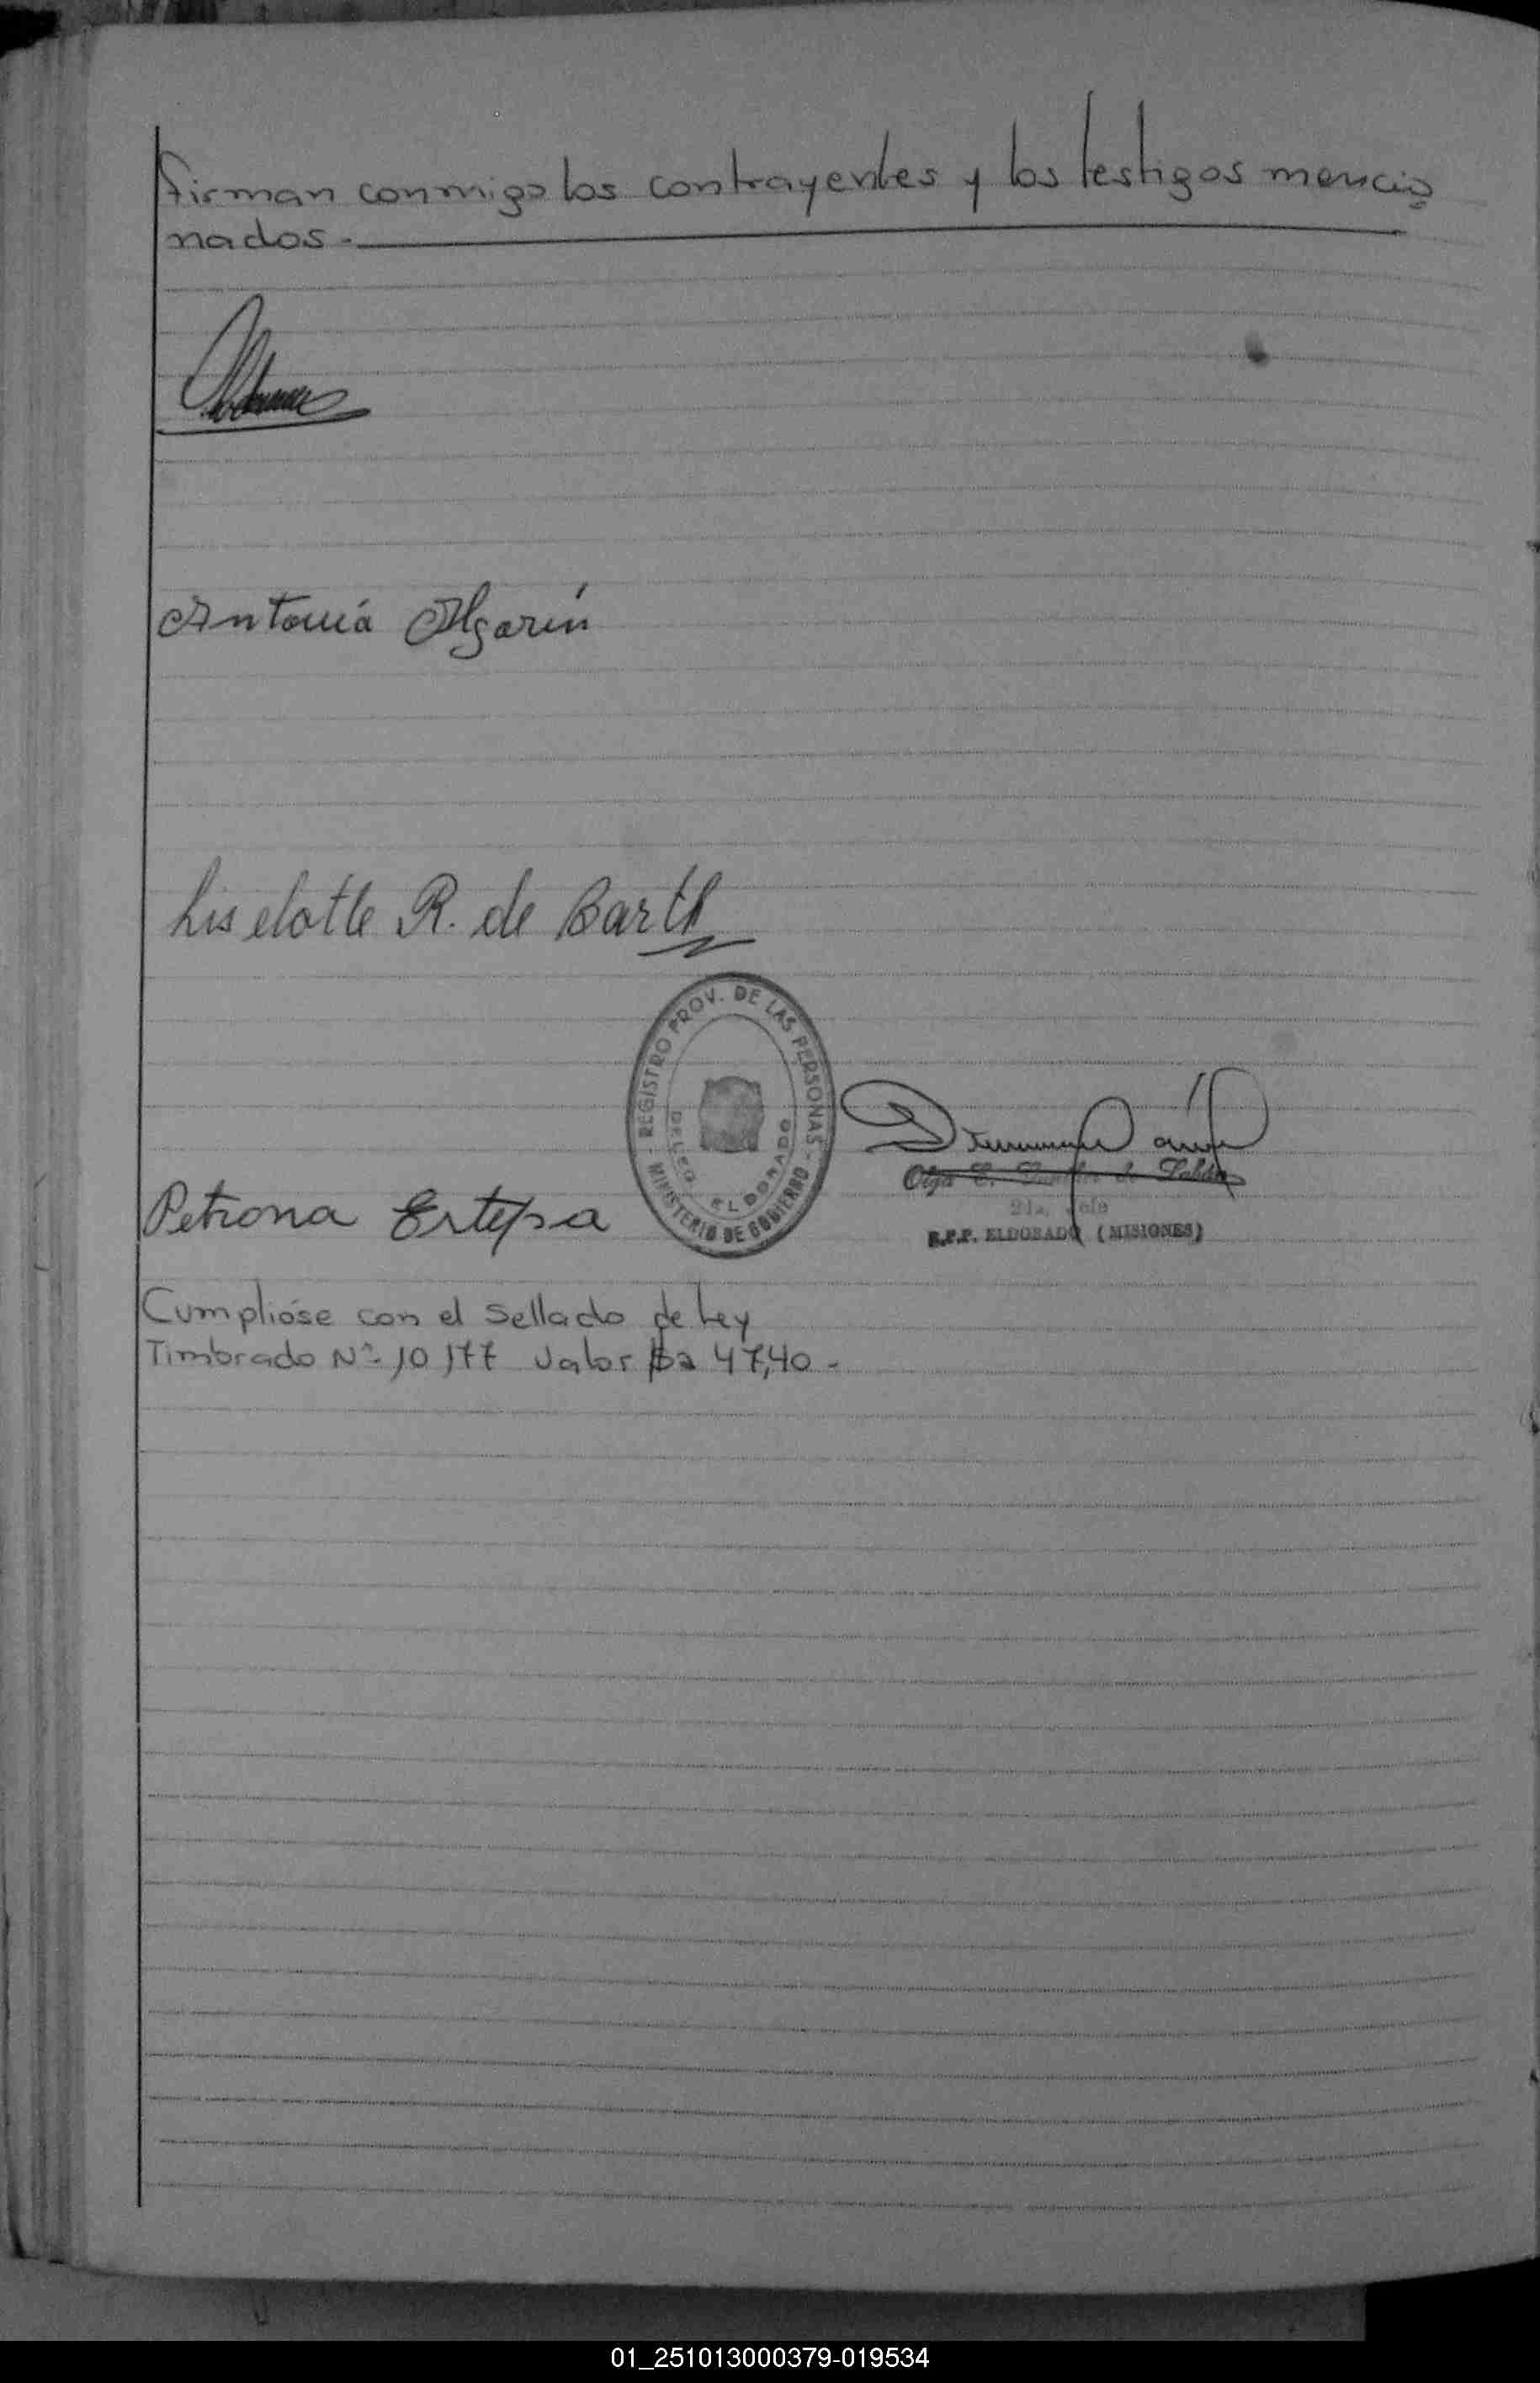 firman conmigo los contrayentes y los testigos mencio
nados.-
Antonia Algarín
Liselotte R. de Barth
REGISTRO PROV. DE LAS PERSONAS - MINISTERIO DE GOBIERNO -
DELEG. ELDORADO
Olga E. de
Jefe
R.P.P. ELDORADO (MISIONES)
Petrona Ertepsa
Cumplióse con el sellado de Ley
Timbrado Nº 10177 Valor $a 47,40.-
01_251013000379-019534